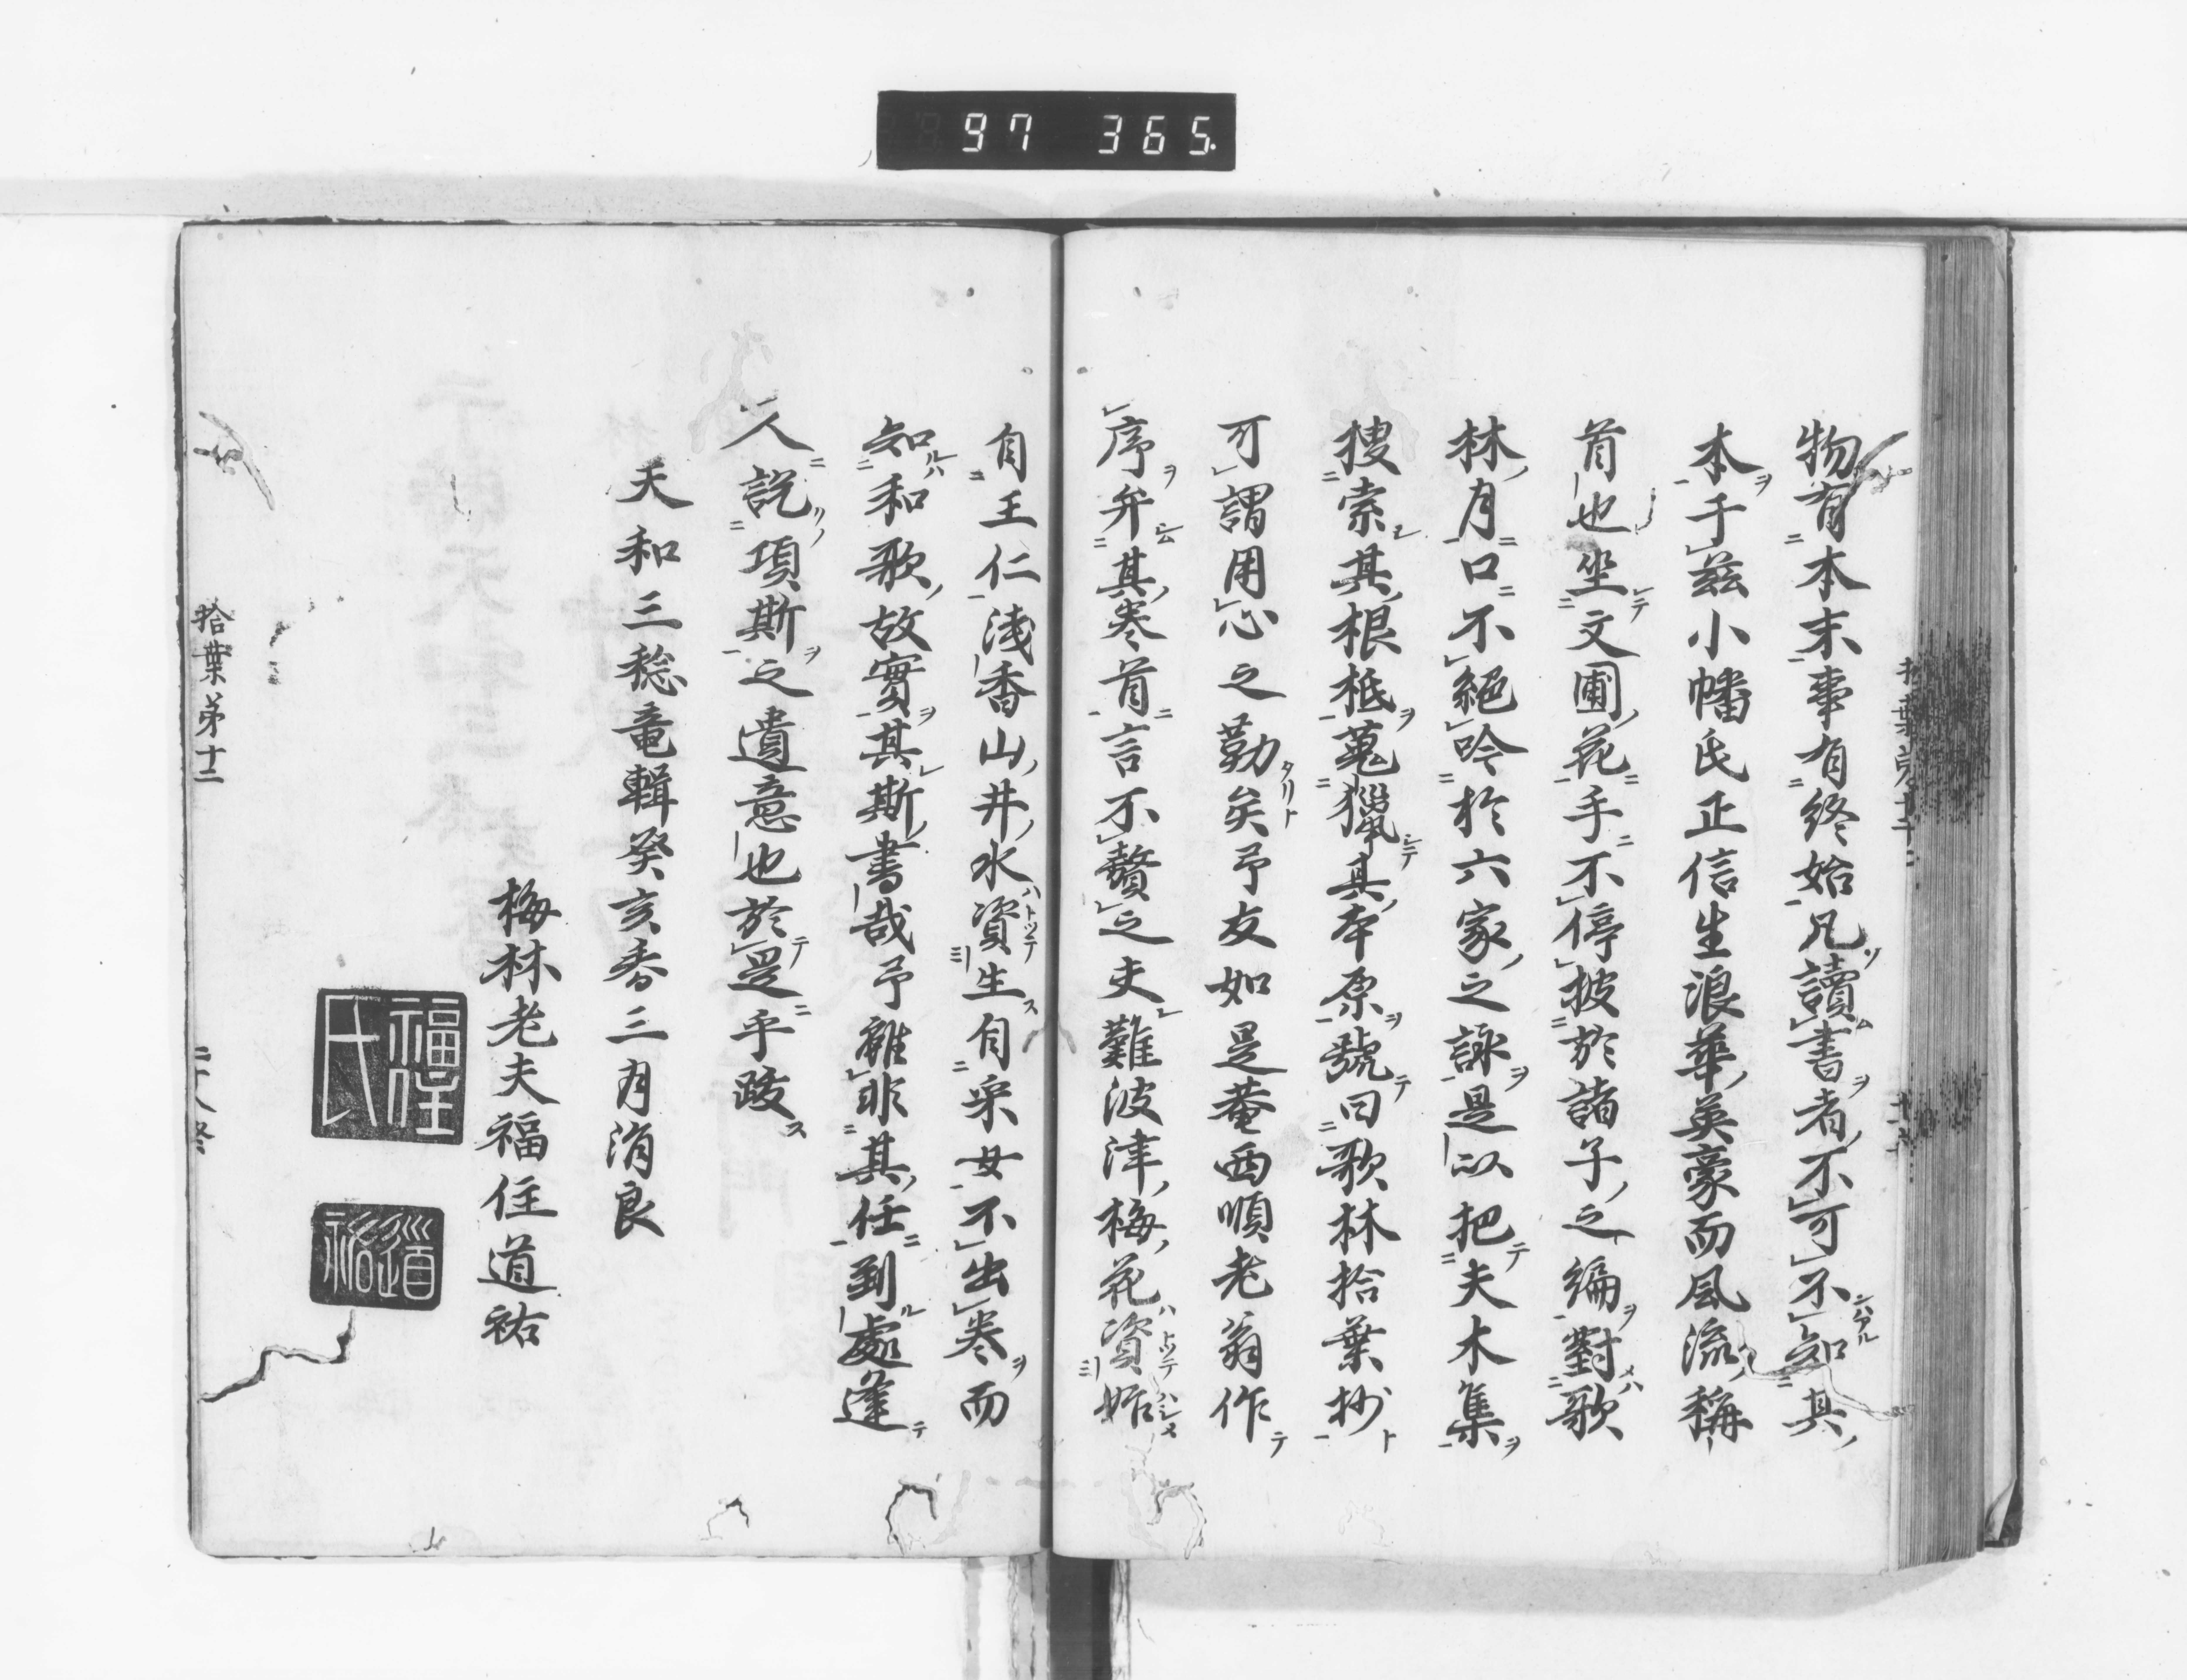 97 365
物有本末事有終始凡讀書者不可不知其
本于茲小幡氏正信生浪華英豪而風流稱
首也坐文圃花手不停披於諸子之編對歌
林月口不絕吟於六家之詠是以把夫木集
搜索其根柢蒐獵其本原號曰歌林拾葉抄
可謂用心之勤矣予友如是菴西順老翁作
序弁其卷首言不贅之夫難波津梅花資始
自王仁淺香山井水資生自采女不出卷而
知和歌故實其斯書哉予雖非其任到處逢
人說項斯之遺意也於是乎跋
天和三稔竜輯癸亥春三月消良
梅林老夫福住道祐
福住氏
道祐
拾葉第十二